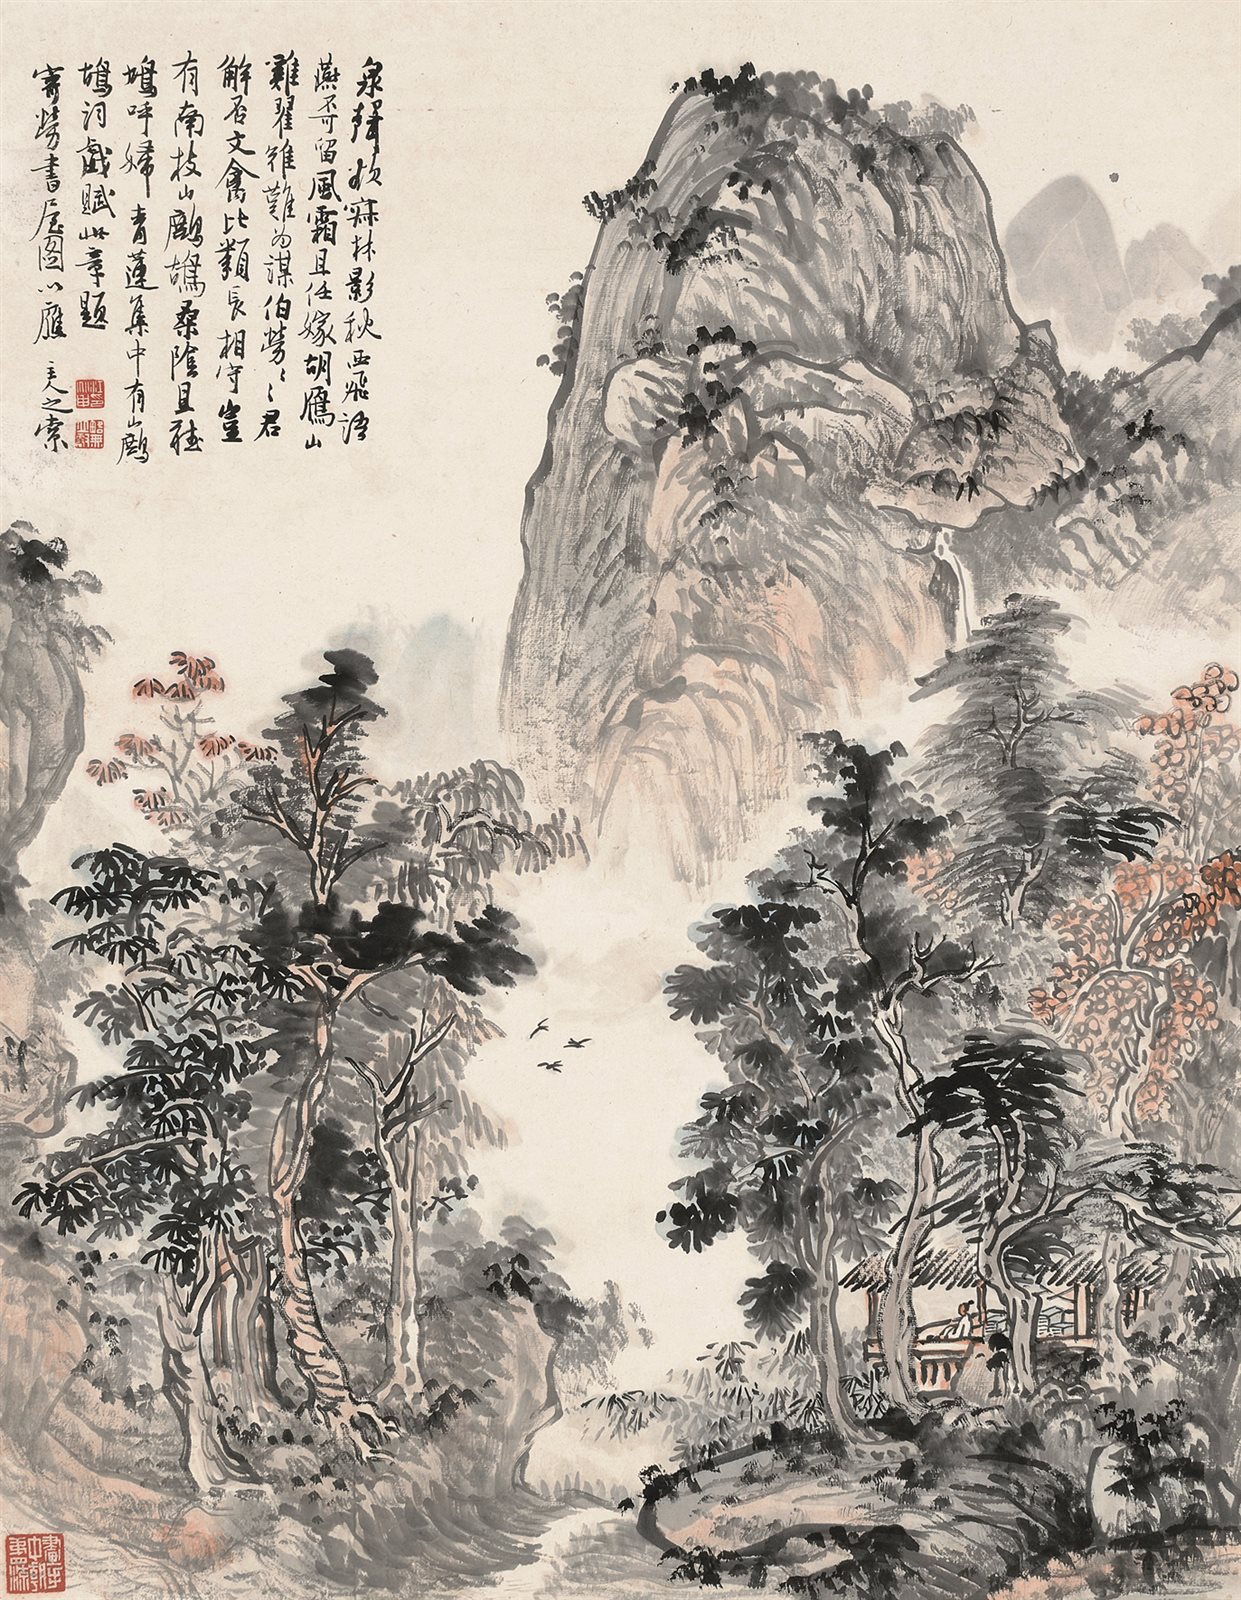 泉聲欲寐林影秋西飛語
燕不可留風霜且任嫁胡鴈山
雞翟雉難為謀伯勞〻〻君
解否文禽比類長相守豈
有南枝山鷓鴣桑陰且聽
鳩呼婦青蓮集中有山鷓
鴣詞戲賦此章題
寄勞書屋图以應主人之索